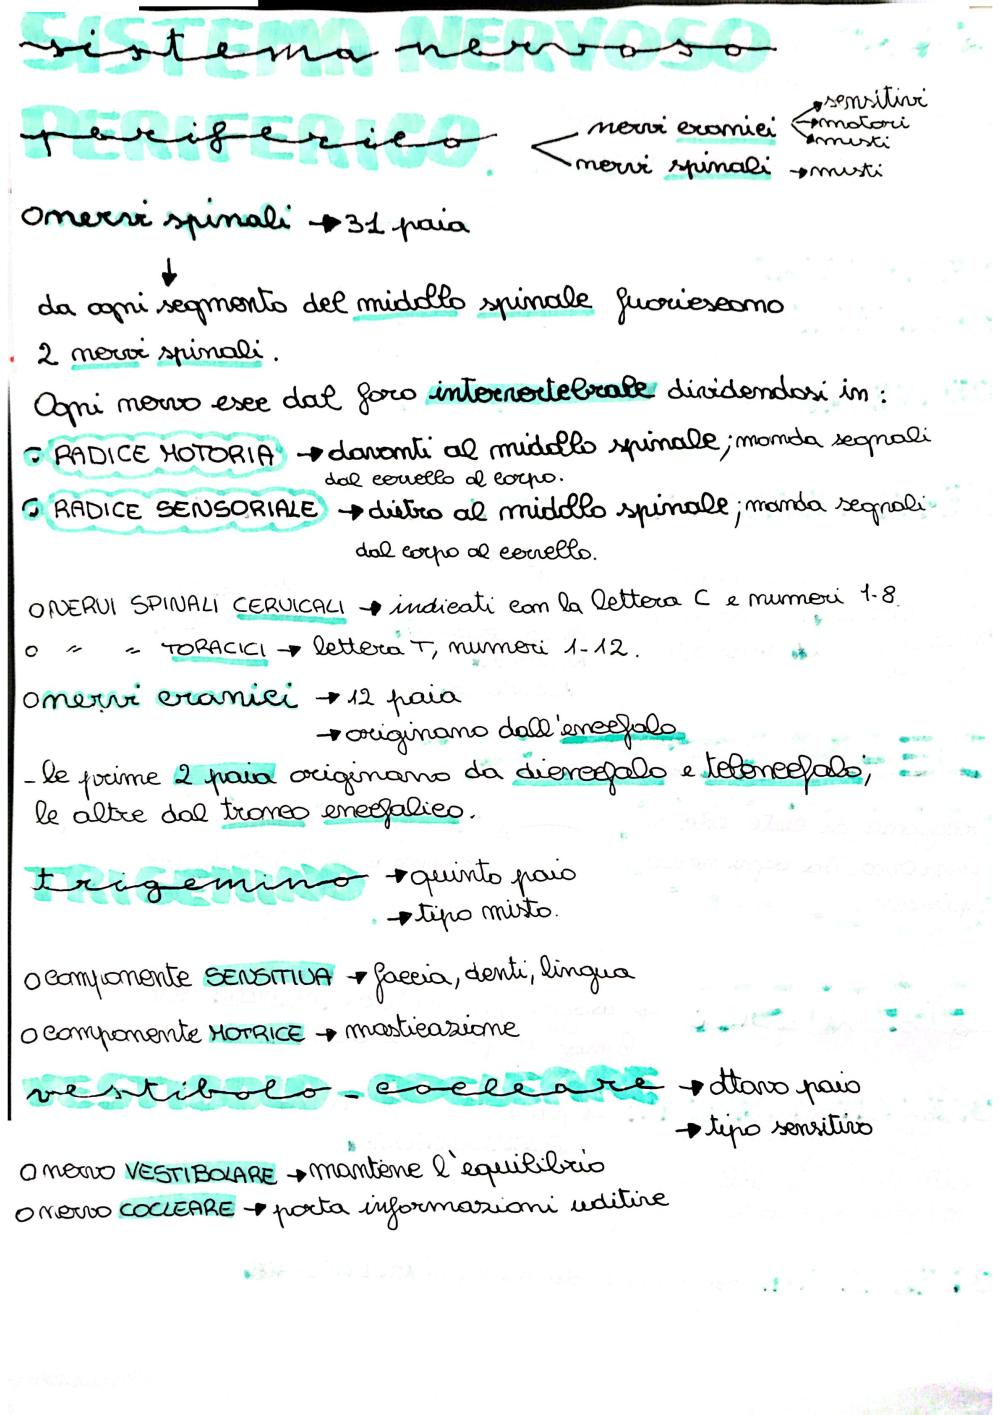 sistema nervoso
periferico
nervi cranici → sensitivi
→ motori
→ misti
nervi spinali → misti
o nervi spinali → 31 paia
↓
da ogni segmento del midollo spinale fuoriescono
2 nervi spinali.
Ogni nervo esce dal foro intervertebrale dividendosi in:
RADICE MOTORIA → davanti al midollo spinale; manda segnali
dal cervello al corpo.
RADICE SENSORIALE → dietro al midollo spinale; manda segnali
dal corpo al cervello.
o NERVI SPINALI CERVICALI → indicati con la lettera C e numeri 1-8.
o " " TORACICI → lettera T, numeri 1-12.
o nervi cranici → 12 paia
→ originano dall'encefalo
- le prime 2 paia originano da diencefalo e telencefalo;
le altre dal tronco encefalico.
trigemino → quinto paio
→ tipo misto.
o componente SENSITIVA → faccia, denti, lingua
o componente MOTRICE → masticazione
vestibolo-cocleare → ottavo paio
→ tipo sensitivo
o nervo VESTIBOLARE → mantiene l'equilibrio
o nervo COCLEARE → porta informazioni uditive